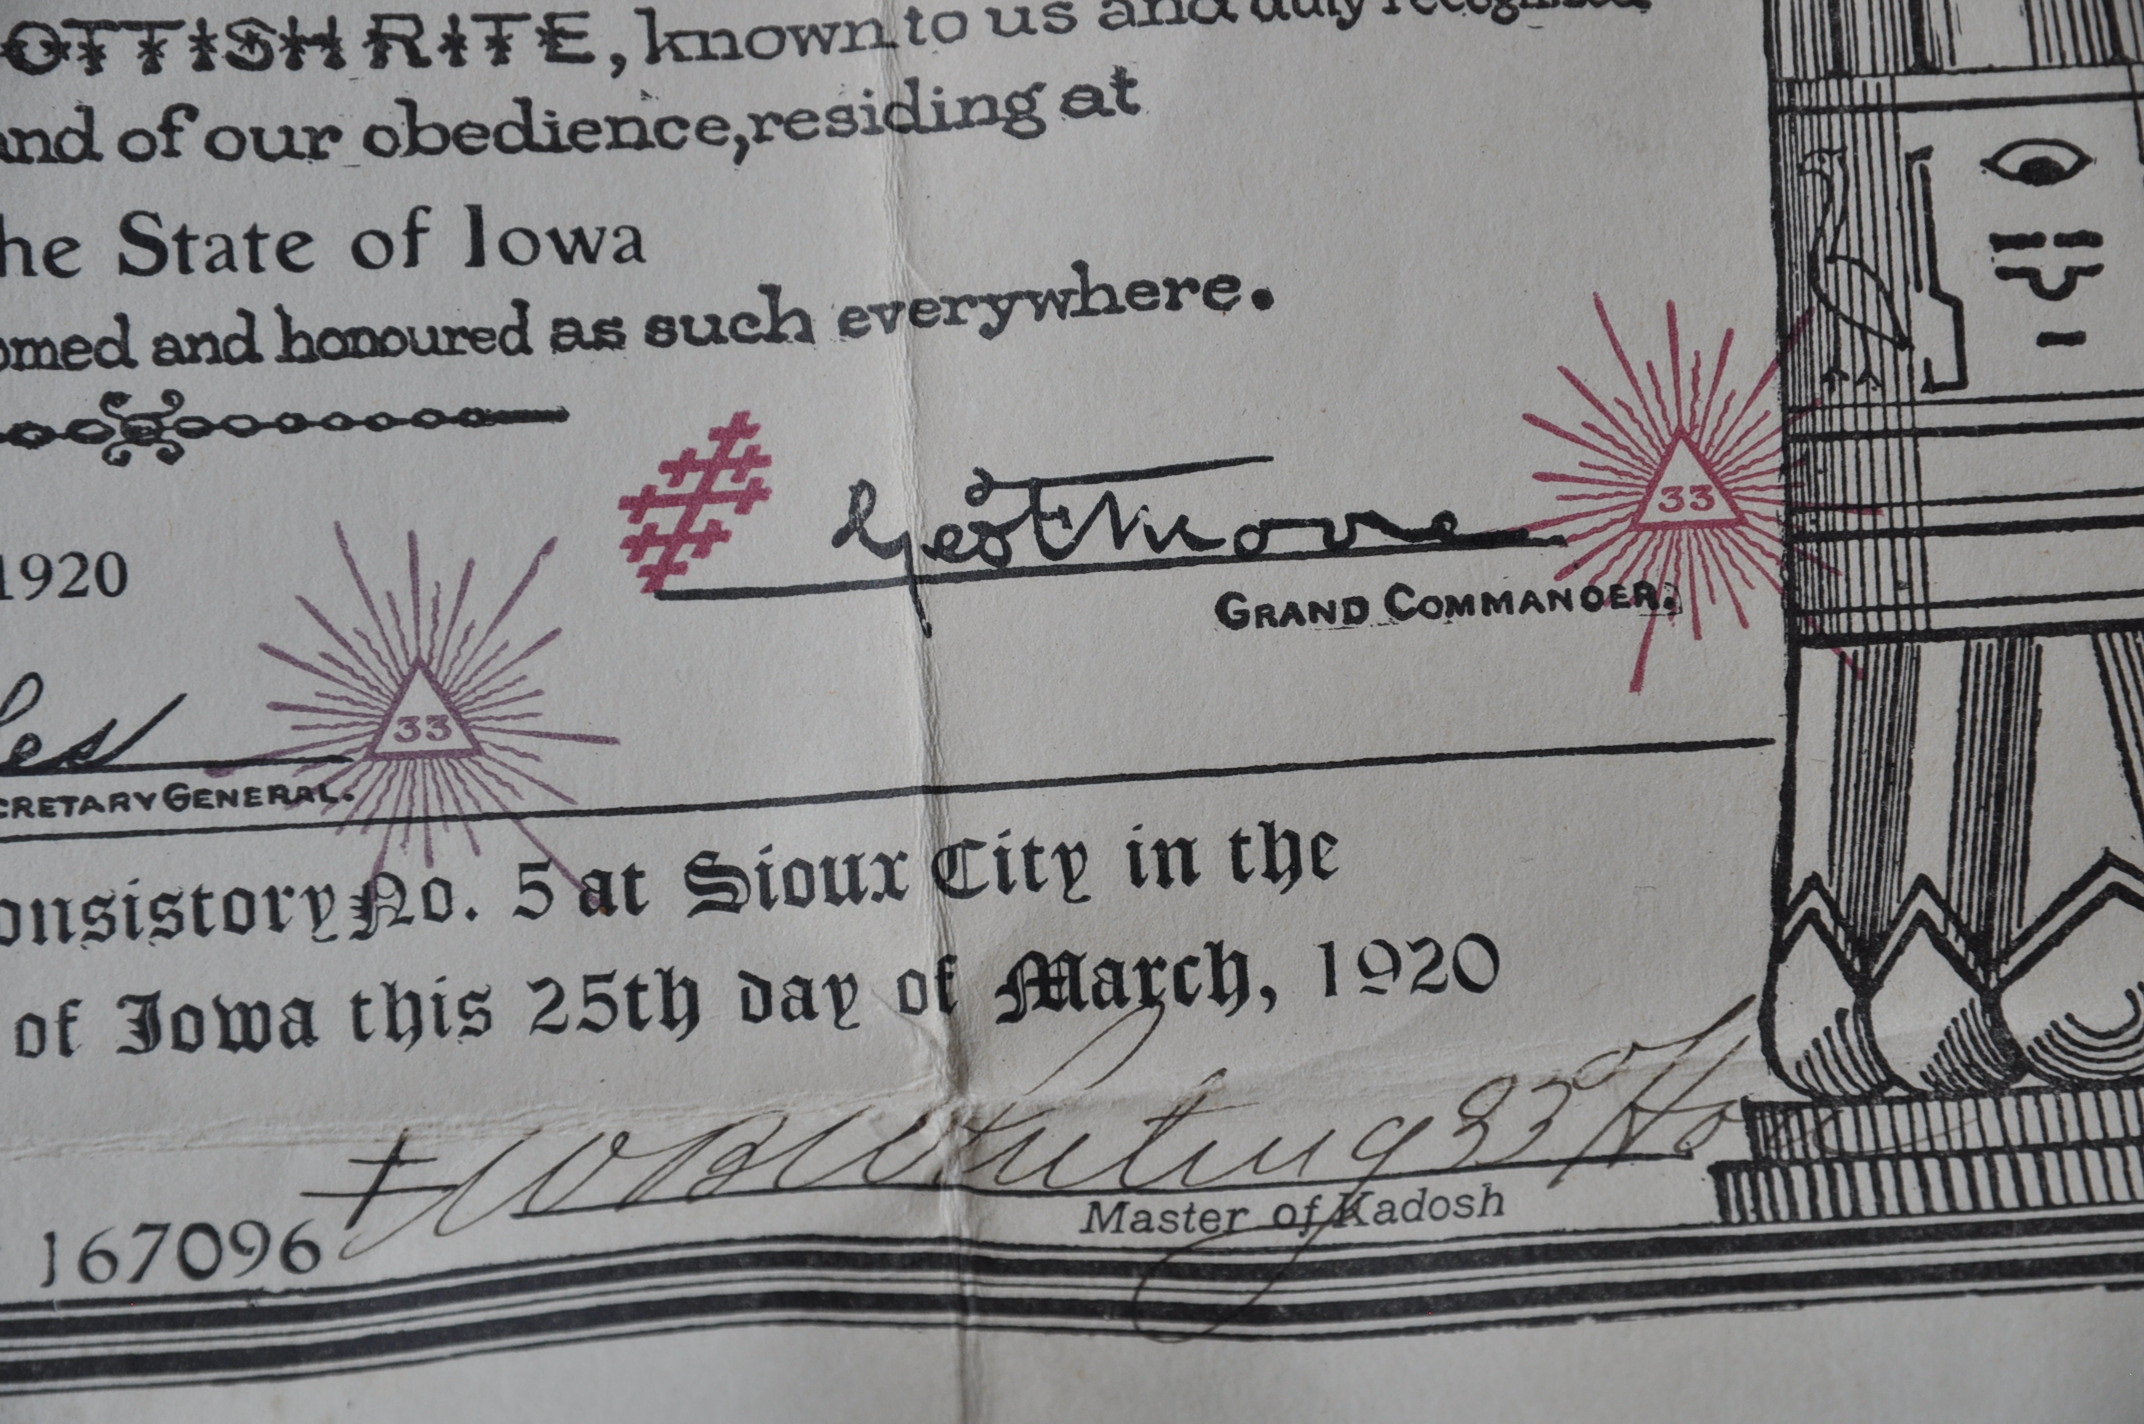 OTTISH RITE, known to us and duly recognized
and of our obedience, residing at
he State of Iowa
omed and honoured as such everywhere.
1920
Geo F Moore
33
GRAND COMMANDER.
les
33
CRETARY GENERAL.
onsistory No. 5 at Sioux City in the
of Iowa this 25th day of March, 1920
W B Whiting 33° Hon
Master of Kadosh
167096